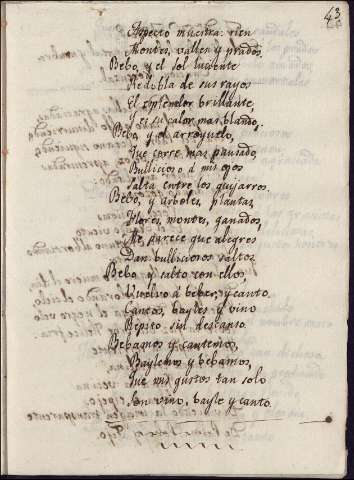 43
Aspecto muestra rien
Montes, valles y prados,
Bebo, y el sol luciente
Redobla de sus rayos
El esplendor brillante,
Y es su calor mas blando,
Bebo, y el arroyuelo,
Que corre mas pausado,
Bullicioso á mis ojos
Salta entre los guijarros.
Bebo, y arboles, plantas,
Flores, montes, ganados,
Me parece que alegres
Dan bulliciosos saltos
Bebo y salto con ellos,
Vuelvo á beber, y canto.
Cantos, bayles y vino
Repito sin descanso
Bebamos y cantemos,
Baylemos y bebamos,
Que mis gustos tan solo
Son vino, bayle y canto.